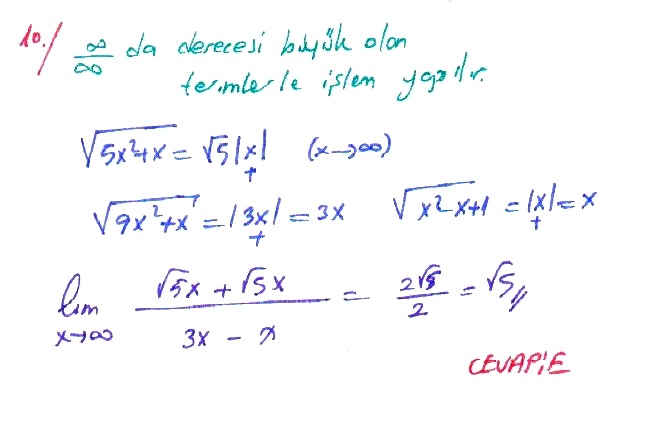 10./ ∞/∞ da derecesi büyük olan
terimlerle işlem yapılır.
√(5x²+x) = √5|x| (x→∞)
+
√(9x²+x) = |3x| = 3x √(x²x+1) = |x| = x
+ +
lim x→∞ (√5x + √5x)/(3x - x) = 2√5/2 = √5//
CEVAP:E